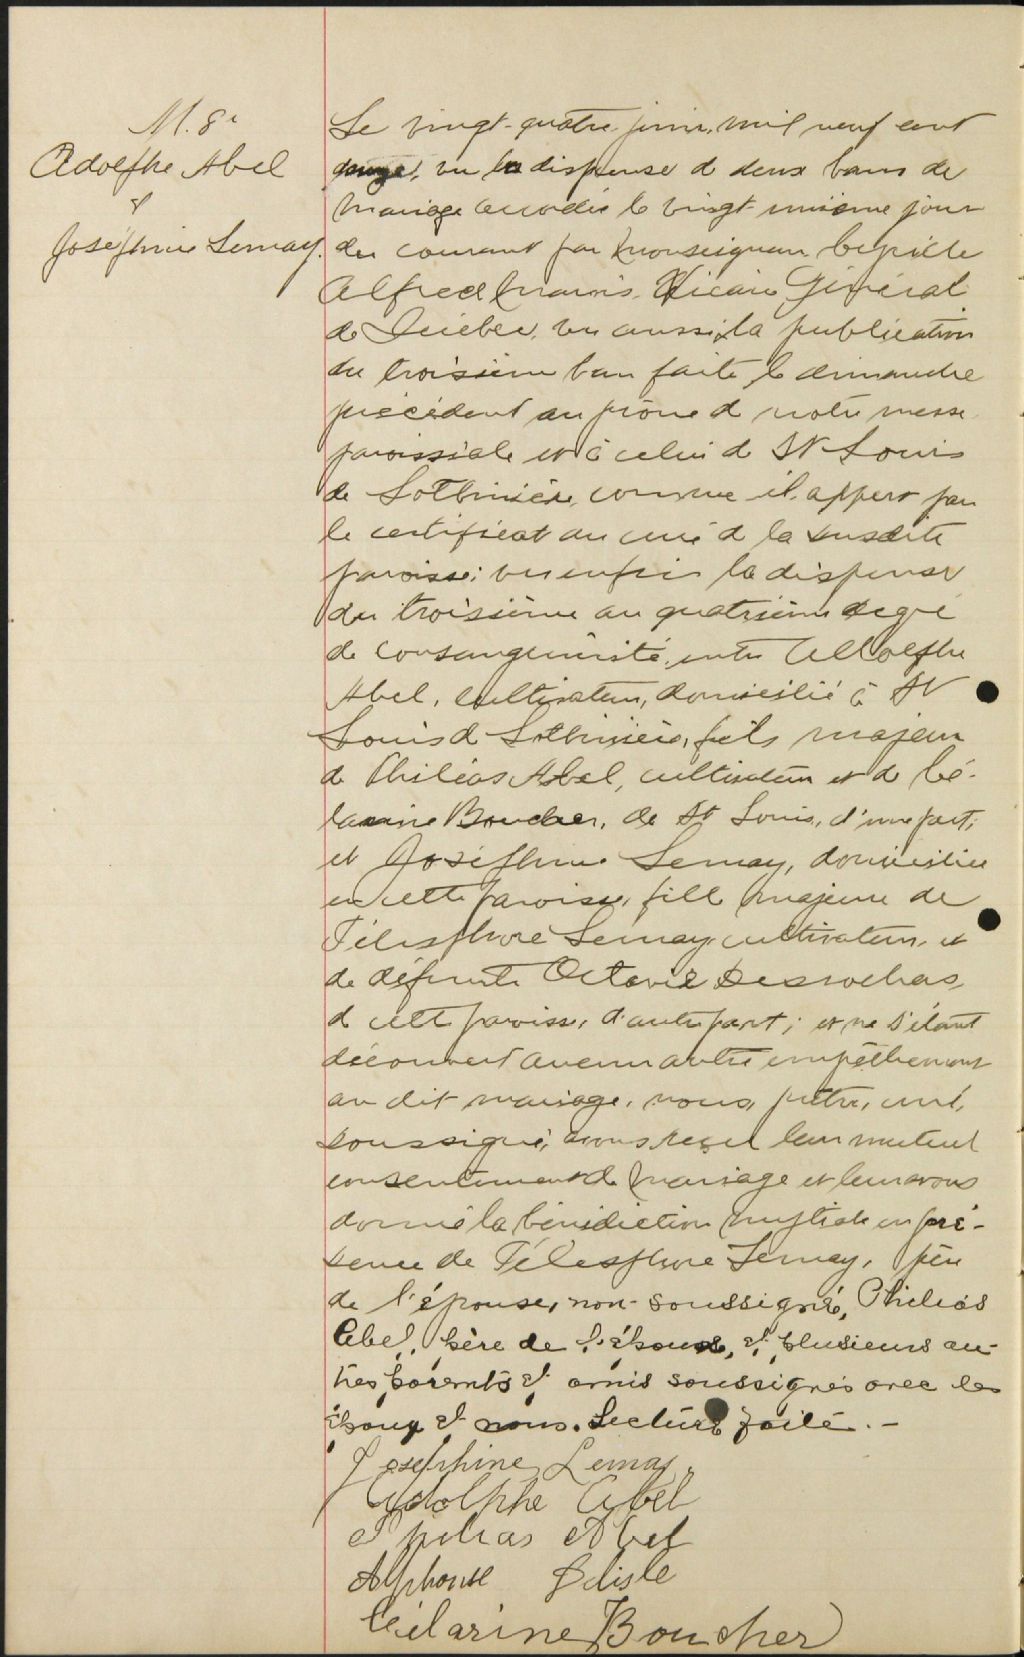 M. 8e
Adolphe Abel
&
Joséphine Lemay.
Le vingt-quatre juin, mil neuf cent
vu la dispense de deux bans de
mariage accordée le vingt-unième jour
du courant par Monseigneur Cyrille
Alfred Marois, Vicaire Général
de Québec, vu aussi la publication
du troisième ban faite le dimanche
précédent au prône de notre messe
paroissiale et à celui de St Louis
de Lotbinière, comme il appert par
le certificat du curé de la susdite
paroisse; vu enfin la dispense
du troisième au quatrième degré
de consanguinité entre Adolphe
Abel, cultivateur, domicilié à St
Louis de Lotbinière, fils majeur
de Philéas Abel, cultivateur et de Cé-
larine Boucher, de St Louis, d'une part;
et Joséphine Lemay, domiciliée
en cette paroisse, fille majeure de
Télesphore Lemay cultivateur, et
de défunte Octavie Desrochers,
de cette paroisse, d'autre part; et ne s'étant
découvert aucun autre empêchement
au dit mariage, nous, prêtre, curé,
soussigné, avons reçu leur mutuel
consentement de mariage et leur avons
donné la bénédiction nuptiale en pré-
sence de Télesphore Lemay, père
de l'épouse, non-soussigné, Philéas
Abel, père de l'époux, et plusieurs au-
tres parents et amis soussignés avec les
époux et nous. Lecture faite. -
Josephine Lemay.
Adolphe Abel
Philias Abel
Alphonse Delisle
Célarine Boucher